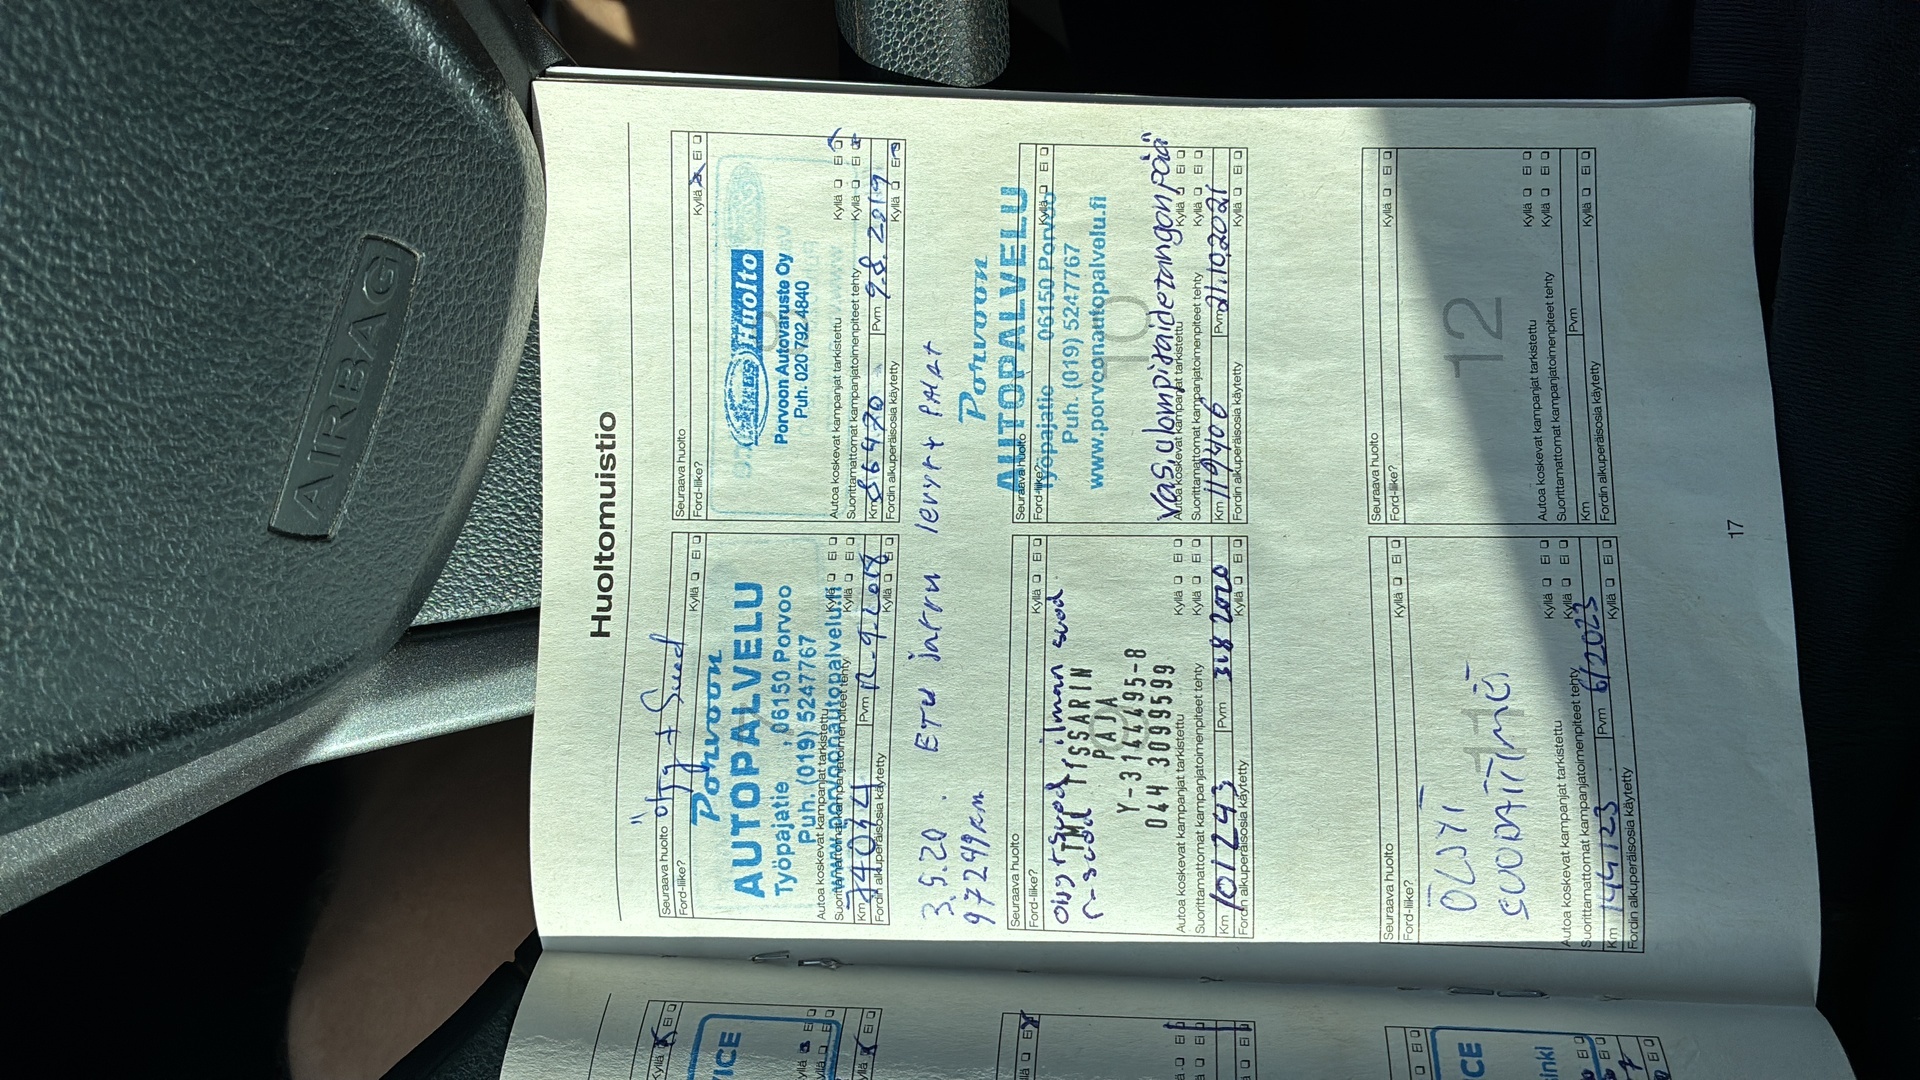 AIRBAG
Huoltomuistio
Seuraava huolto öljy + Suod
Ford-liike? Kyllä Ei
Porvoon
AUTOPALVELU
Työpajatie , 06150 Porvoo
Puh. (019) 5247767
www.porvoonautopalvelu.fi
Autoa koskevat kampanjat tarkistettu Kyllä Ei
Suorittamattomat kampanjatoimenpiteet tehty Kyllä Ei
Km 74034 Pvm 2018
Fordin alkuperäisosia käytetty Kyllä Ei
Seuraava huolto
Ford-liike? Kyllä Ei
Huolto
Porvoon Autovaruste Oy
Puh. 020 792 4840
Autoa koskevat kampanjat tarkistettu Kyllä Ei
Suorittamattomat kampanjatoimenpiteet tehty Kyllä Ei
Km 86470 Pvm 9.8.2019
Fordin alkuperäisosia käytetty Kyllä Ei
3.5.20. ETU jarru levyt+ PALAT
97299km
Seuraava huolto
Ford-liike? Kyllä Ei
ilman suod.
TMI TISSARIN
PAJA
Y-3144495-8
044 3099599
Autoa koskevat kampanjat tarkistettu Kyllä Ei
Suorittamattomat kampanjatoimenpiteet tehty Kyllä Ei
Km 101243 Pvm 31.8 2020
Fordin alkuperäisosia käytetty Kyllä Ei
Porvoon
AUTOPALVELU
Seuraava huolto
Ford-liike? Kyllä Ei
Työpajatie 06150 Porvoo
Puh. (019) 5247767
www.porvoonautopalvelu.fi
10
Vas, ulompi raidetangonpää
Autoa koskevat kampanjat tarkistettu Kyllä Ei
Suorittamattomat kampanjatoimenpiteet tehty Kyllä Ei
Km 119406 Pvm 21.10.2021
Fordin alkuperäisosia käytetty Kyllä Ei
Seuraava huolto
Ford-liike? Kyllä Ei
11
ÖLJYT
SUODATTIMET
Autoa koskevat kampanjat tarkistettu Kyllä Ei
Suorittamattomat kampanjatoimenpiteet tehty Kyllä Ei
Km 144123 Pvm 6/2023
Fordin alkuperäisosia käytetty Kyllä Ei
Seuraava huolto
Ford-liike? Kyllä Ei
12
Autoa koskevat kampanjat tarkistettu Kyllä Ei
Suorittamattomat kampanjatoimenpiteet tehty Kyllä Ei
Km Pvm
Fordin alkuperäisosia käytetty Kyllä Ei
17